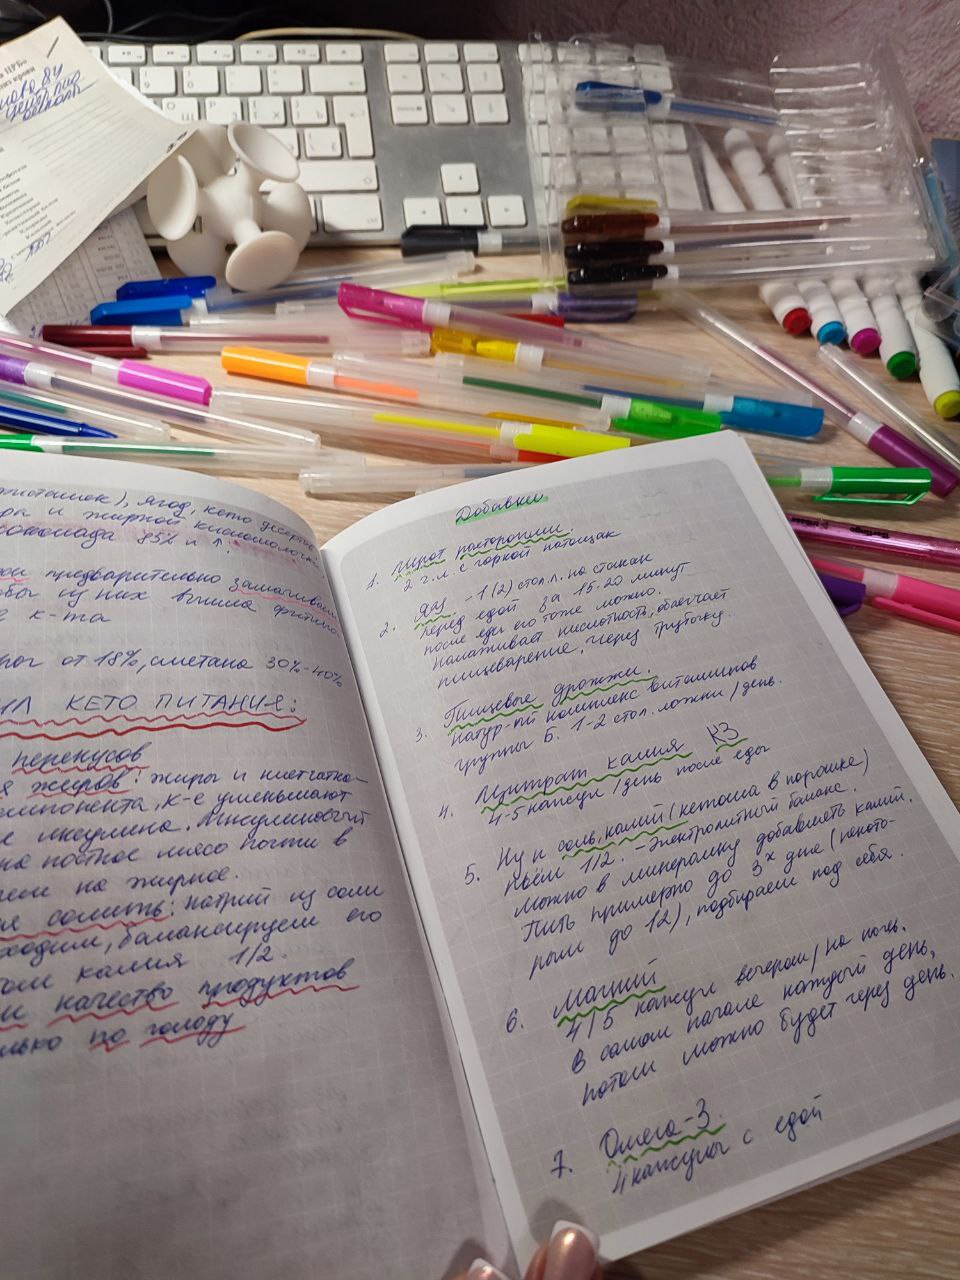 фисташек), ягод, кето десертов
ра и жирной кисломолочки,
шоколада 85% и ↑.
предварительно замачиваем
обы из них вышла фитино-
к-та
рог от 18%, сметана 30%-40%
ИЛ КЕТО ПИТАНИЯ:
перекусов
я жиров: жиры и клетчатка-
компонента, к-е уменьшают
е инсулина. Инсулиновый
на постное мясо почти в
чем на жирное.
я солить: натрий из соли
ходим, балансируем его
том калия 1/2.
и качество продуктов
лько по голоду
Добавки
1. Шрот расторопши.
2 ч.л. с горкой натощак
2. ЯЯУ -1(2) стол.л. на стакан
перед едой за 15-20 минут
после еды его тоже можно.
Налаживает кислотность, облегчает
пищеварение, через трубочку.
3. Пищевые дрожжи.
натур-ый комплекс витаминов
группы Б. 1-2 стол. ложки/день.
4. Цитрат калия КЗ
4-5 капсул/день после еды
5. Ну и соль, калий (кетоша в порошке)
пьём 1/2. - Электролитный баланс.
Можно в минералку добавлять калий.
Пить примерно до 3х дня (некото-
рым до 12), подбираем под себя.
6. Магний
4/5 капсул вечером/на ночь.
в самом начале каждый день,
потом можно будет через день.
7. Омега-3.
4 капсулы с едой